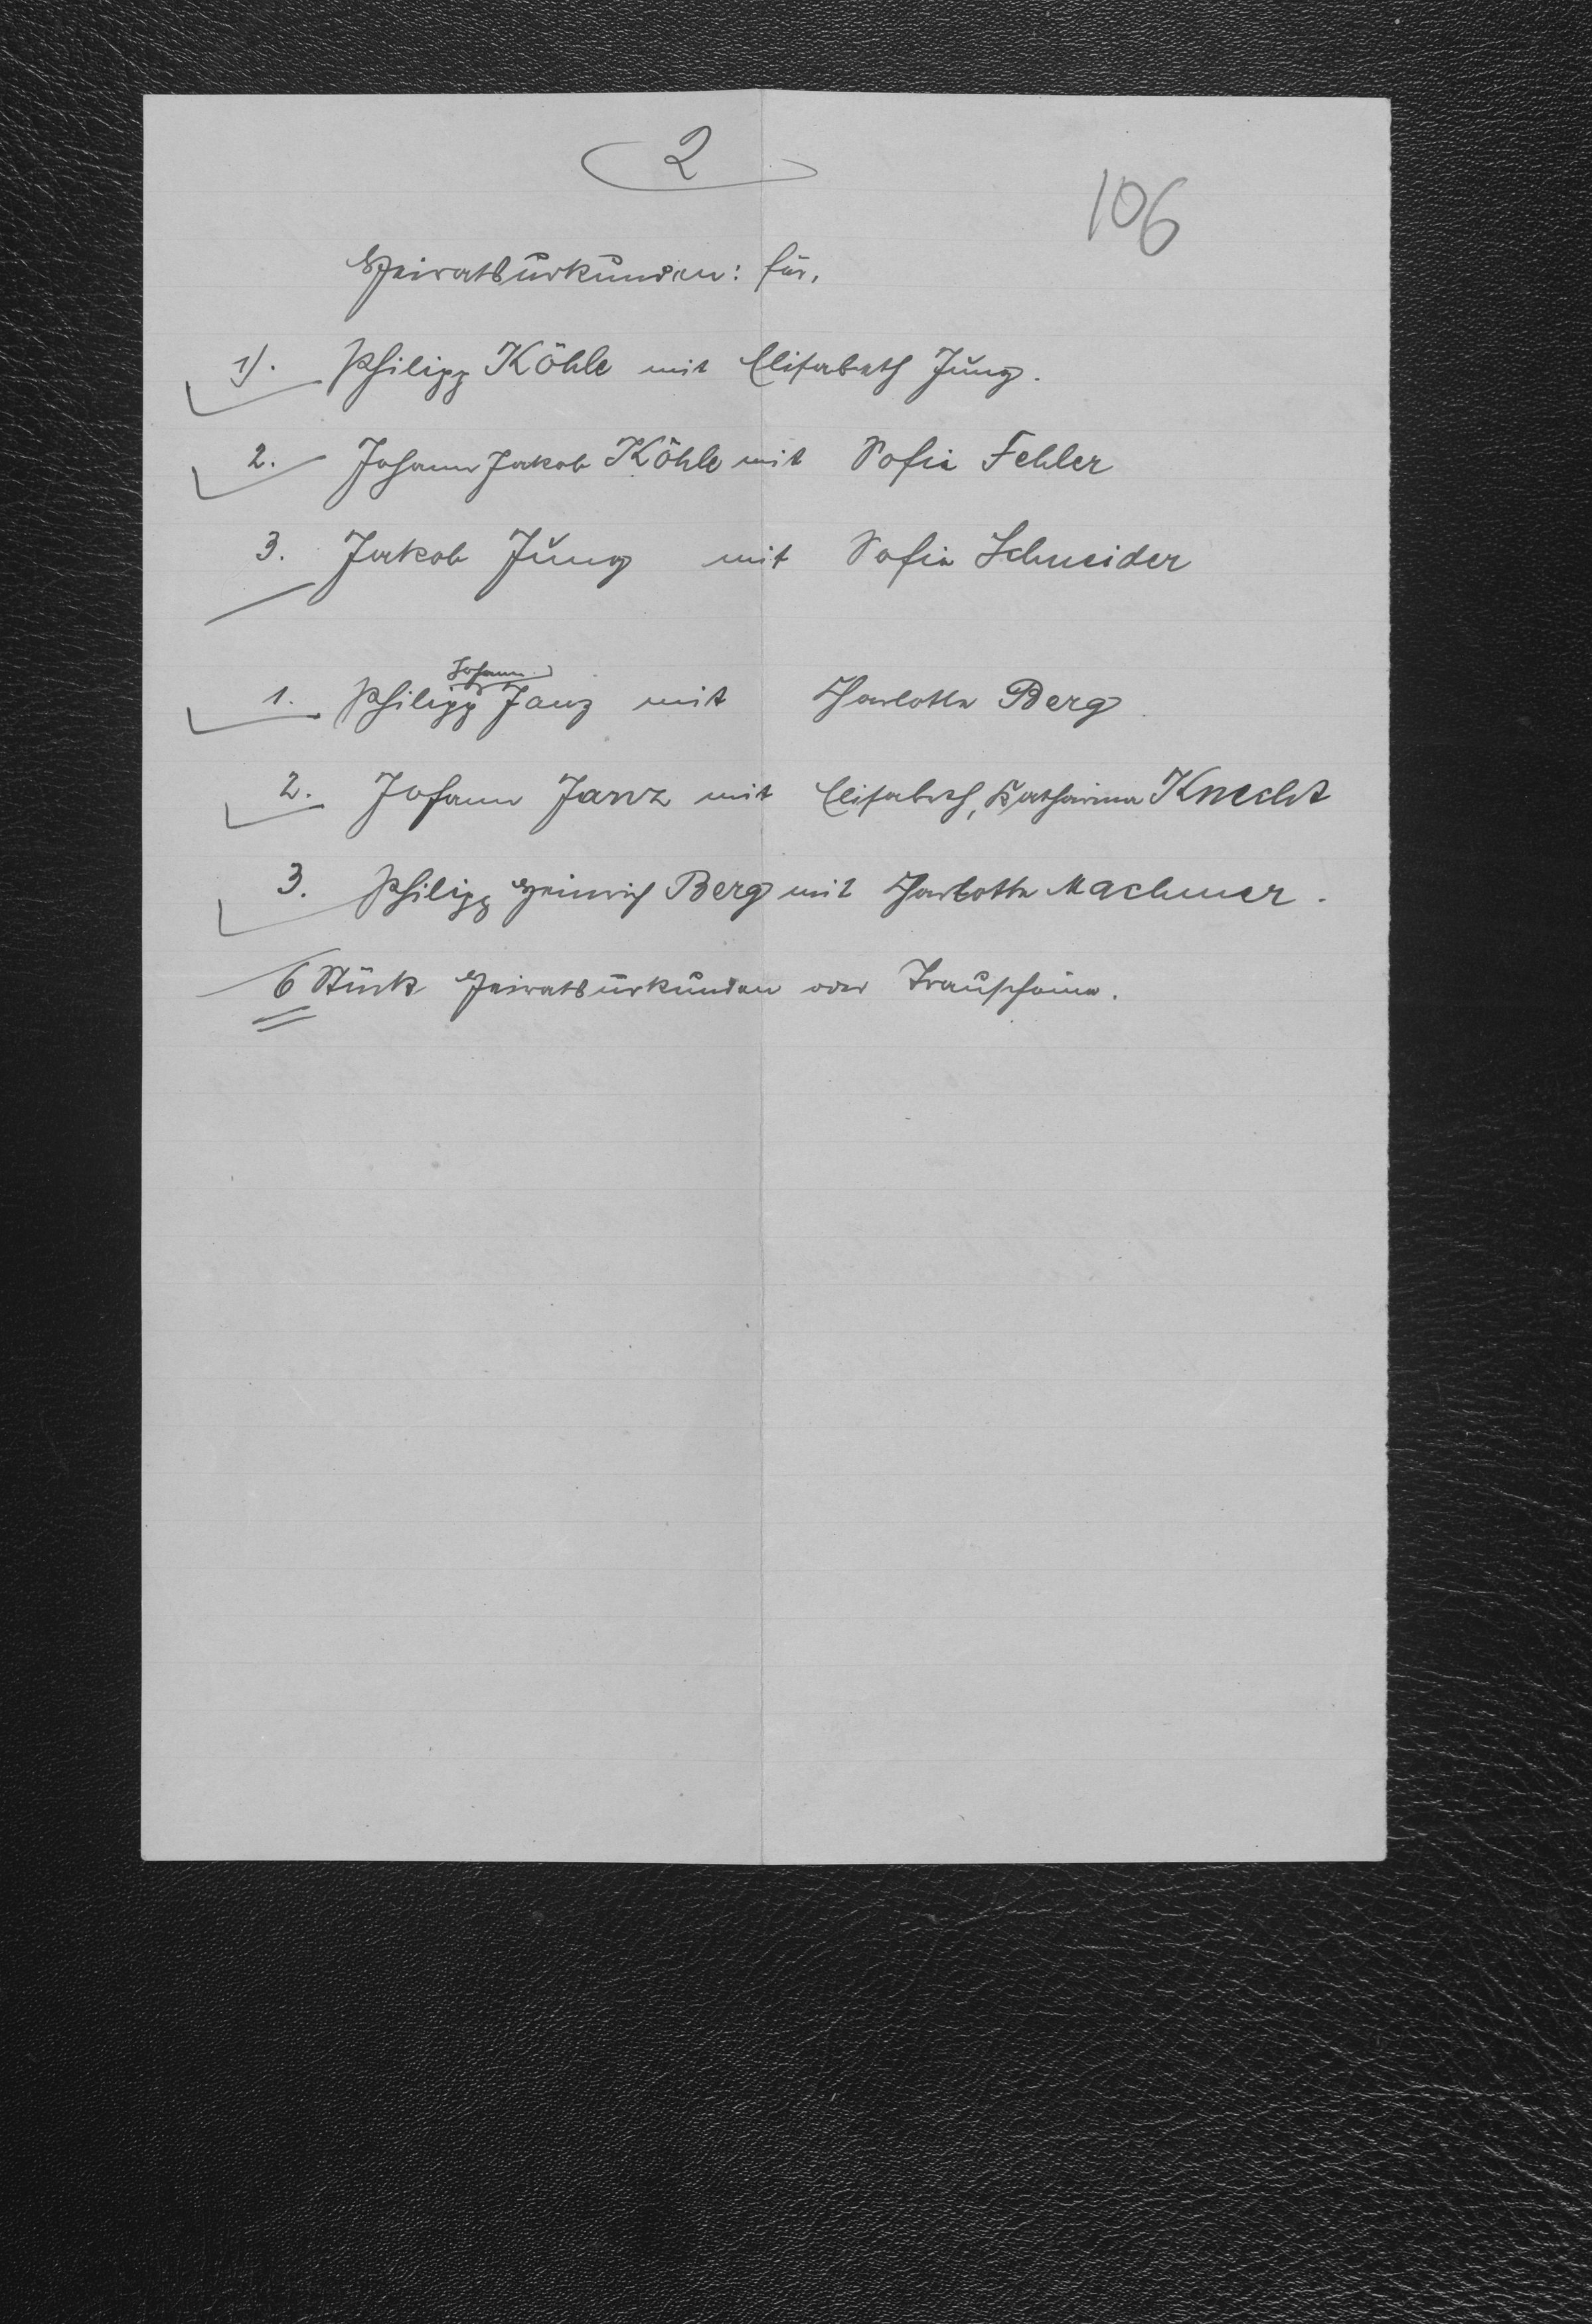 2
106
Heiratsurkunden: für,
1). Philipp Köhle mit Elisabeth Jung.
2. Johann Jakob Köhle mit Sofie Fehler
3. Jakob Jung mit Sofie Schneider
Johann
1. Philipp Janz mit Charlotte Berg
2. Johann Janz mit Elisabeth, Katharina Knecht
3. Philipp Heinrich Berg mit Charlotte Machmer.
6 Stück Heiratsurkunden oder Trauscheine.